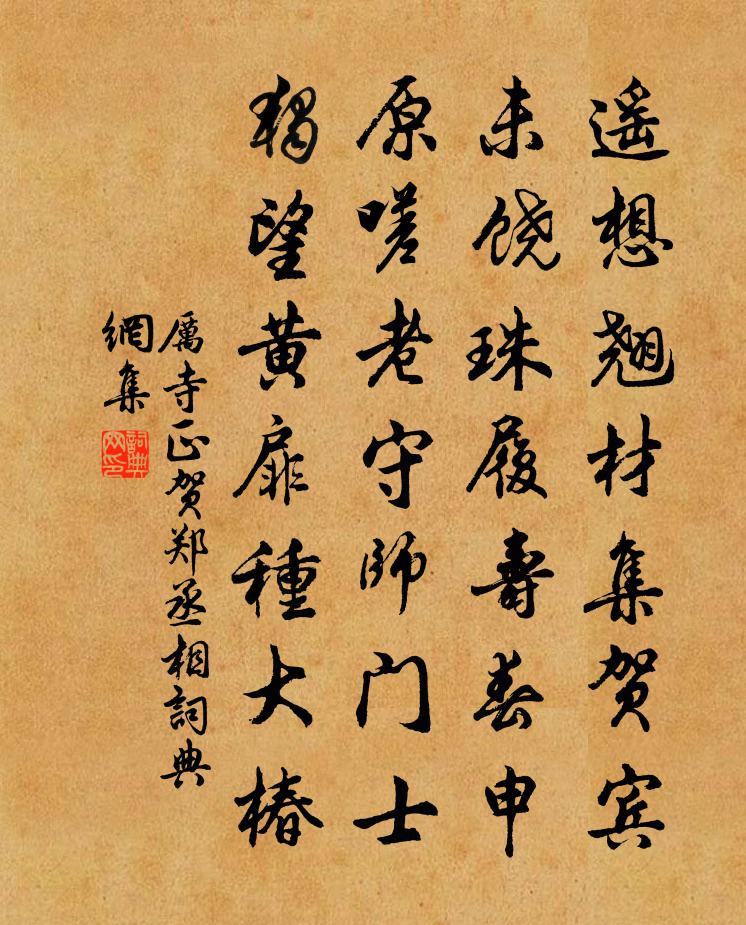 遥想翘材集贺宾
未饶珠履寿春申
原嗟老守師门士
独望黄扉種大椿
厲寺正贺郑丞相詞典
網集
詞典网印